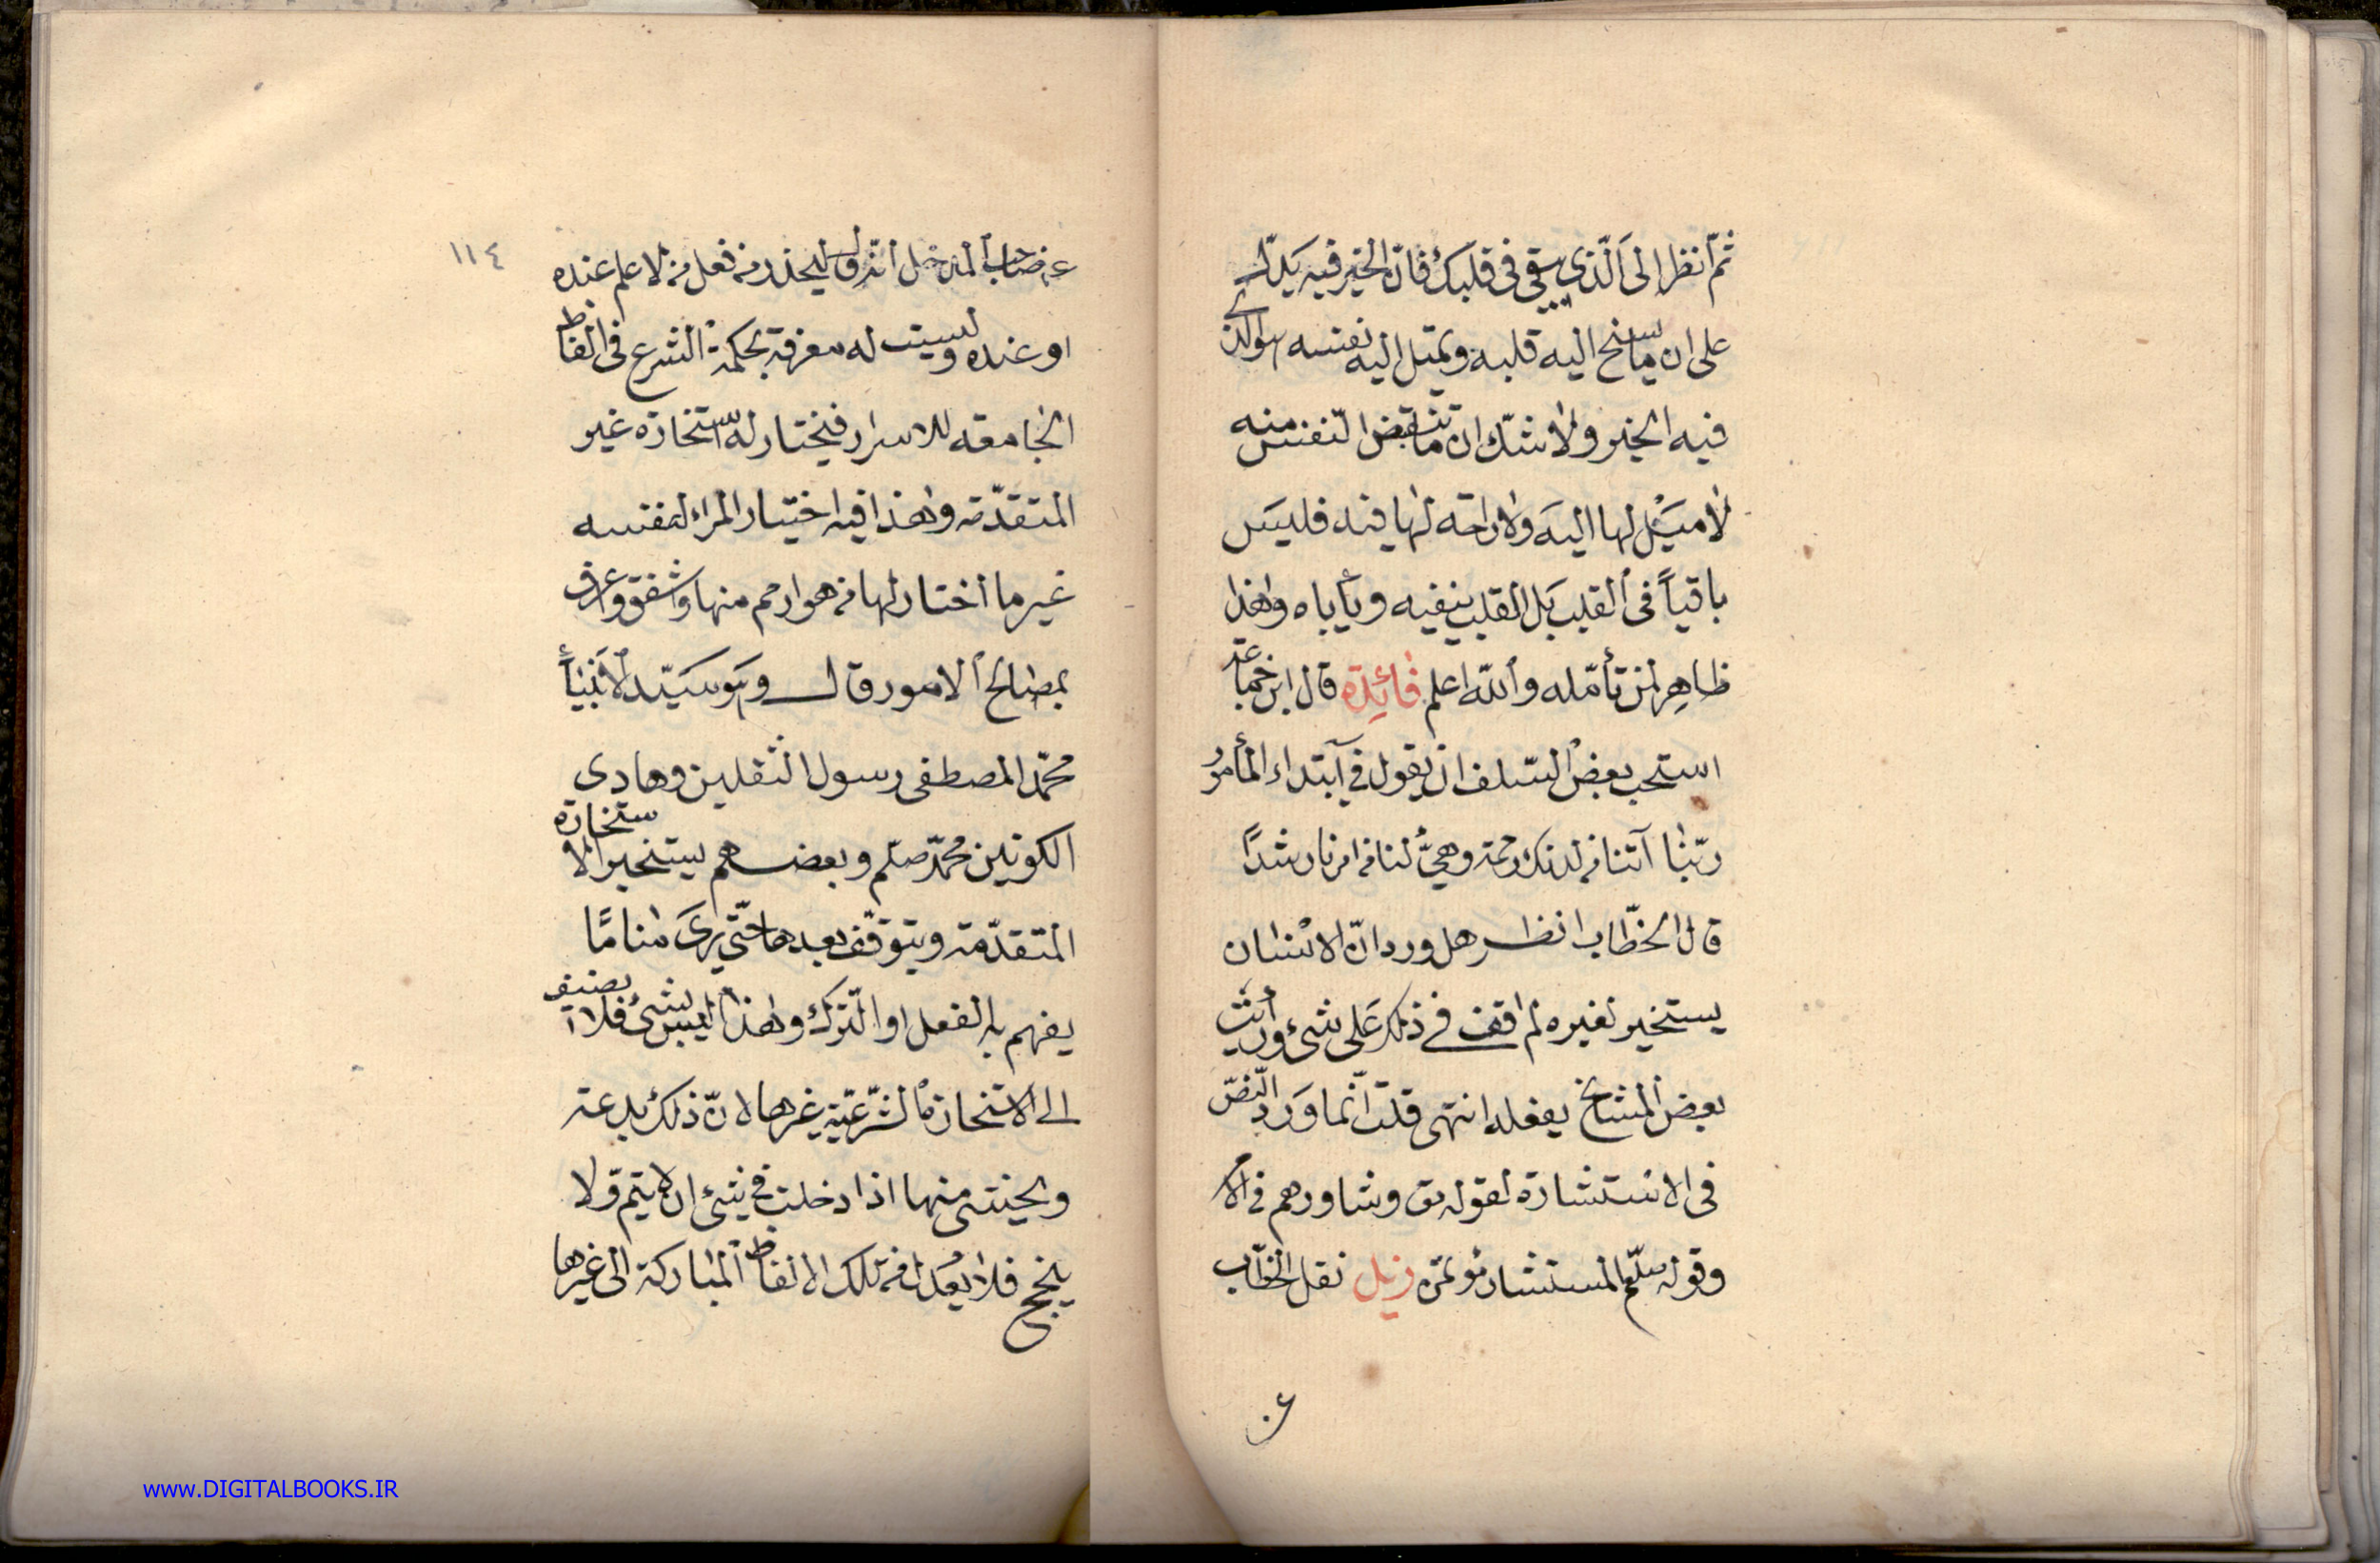 ثمّ انظر الى الّذى يبقى فى قلبك فانّ الخير فيه يدلّك
على ان ما سنح اليه قلبه ويميل اليه نفسه هو الذى
فيه الخير ولا شكّ ان ما تنقبض النفس منه
لا ميل لها اليه ولا راحة لها فيه فليس
باقياً فى القلب بل القلب ينفيه ويأباه وهذا
ظاهر لمن تأمّله والله اعلم فائدة قال ابن جماعة
استحب بعض السّلف ان يقول فى ابتداء المأمور
ربّنا آتنا من لدنك رحمة وهيّئ لنا من امرنا رشداً
قال الخطّاب انظر هل ورد انّ الانسان
يستخير لغيره لم اقف فى ذلك على شئ ورأيت
بعض المشايخ يفعله انتهى قلت انّما ورد النّصّ
فى الاستشارة لقوله تع وشاورهم فى الامر
وقوله صلعم المستشار مؤتمن ذيل نقل الخطّاب
عن
١١٤
عن صاحب المدخل انه قال ليحذر من فعل من لا علم عنده
او عنده وليست له معرفة بحكمة الشرع فى الفاظ
الجامعه للاسرار فيختار له استخارة غير
المتقدّمة وهذا فيه اختيار المراء لنفسه
غير ما اختار لها من هو ارحم منها واشفق واعرف
بمصالح الامور قال وهو سيّد الانبياء
محمّد المصطفى رسول الثقلين وهادى
الكونين محمّد صلعم وبعضهم يستخير الاستخارة
المتقدّمة ويتوقّف بعدها حتّى يرى مناما
يفهم به الفعل او الترك وهذا ليس بشئ فلا يضيف
الى الاستخارة الشّرعيّة غيرها لانّ ذلك بدعة
ويخشى منها اذا دخلت فى شئ ان لا يتم ولا
ينجح فلا يعدل من تلك الالفاظ المباركة الى غيرها
www.DIGITALBOOKS.IR